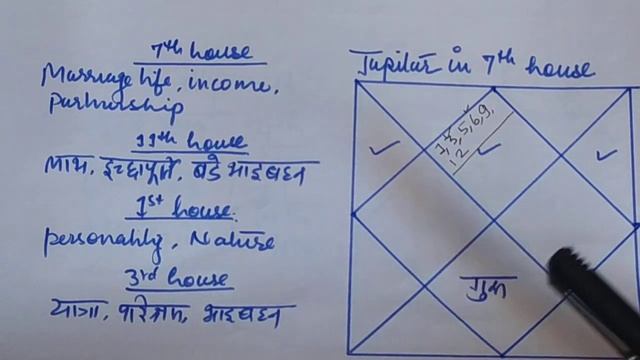 7th house
Marriage life, income,
Partnership
11th house
लाभ, इच्छापूर्ति, बडे भाइबहन
1st house
personality, Nature
3rd house
यात्रा, परिश्रम, भाइबहन
Jupitar in 7th house
1, 3, 5, 6, 9,
12
गुरू